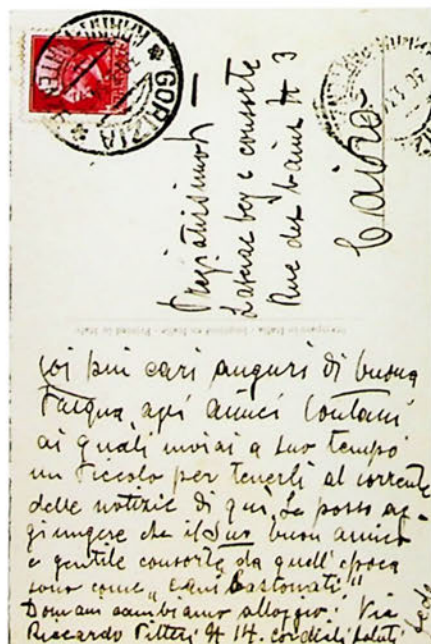 GORIZIA
Pregiatissimi
Lasciac bey e consorte
Rue des bains N 3
Cairo
Coi più cari auguri di buona
Pasqua agli amici lontani
ai quali inviai a suo tempo
un Piccolo per tenerli al corrente
delle notizie di qui. Le posso ag-
giungere che il Suo buon amico
e gentile consorte da quell'epoca
sono come "cani bastonati"
Domani cambiamo alloggio: Via
Riccardo Pitteri N 14. cordiali saluti